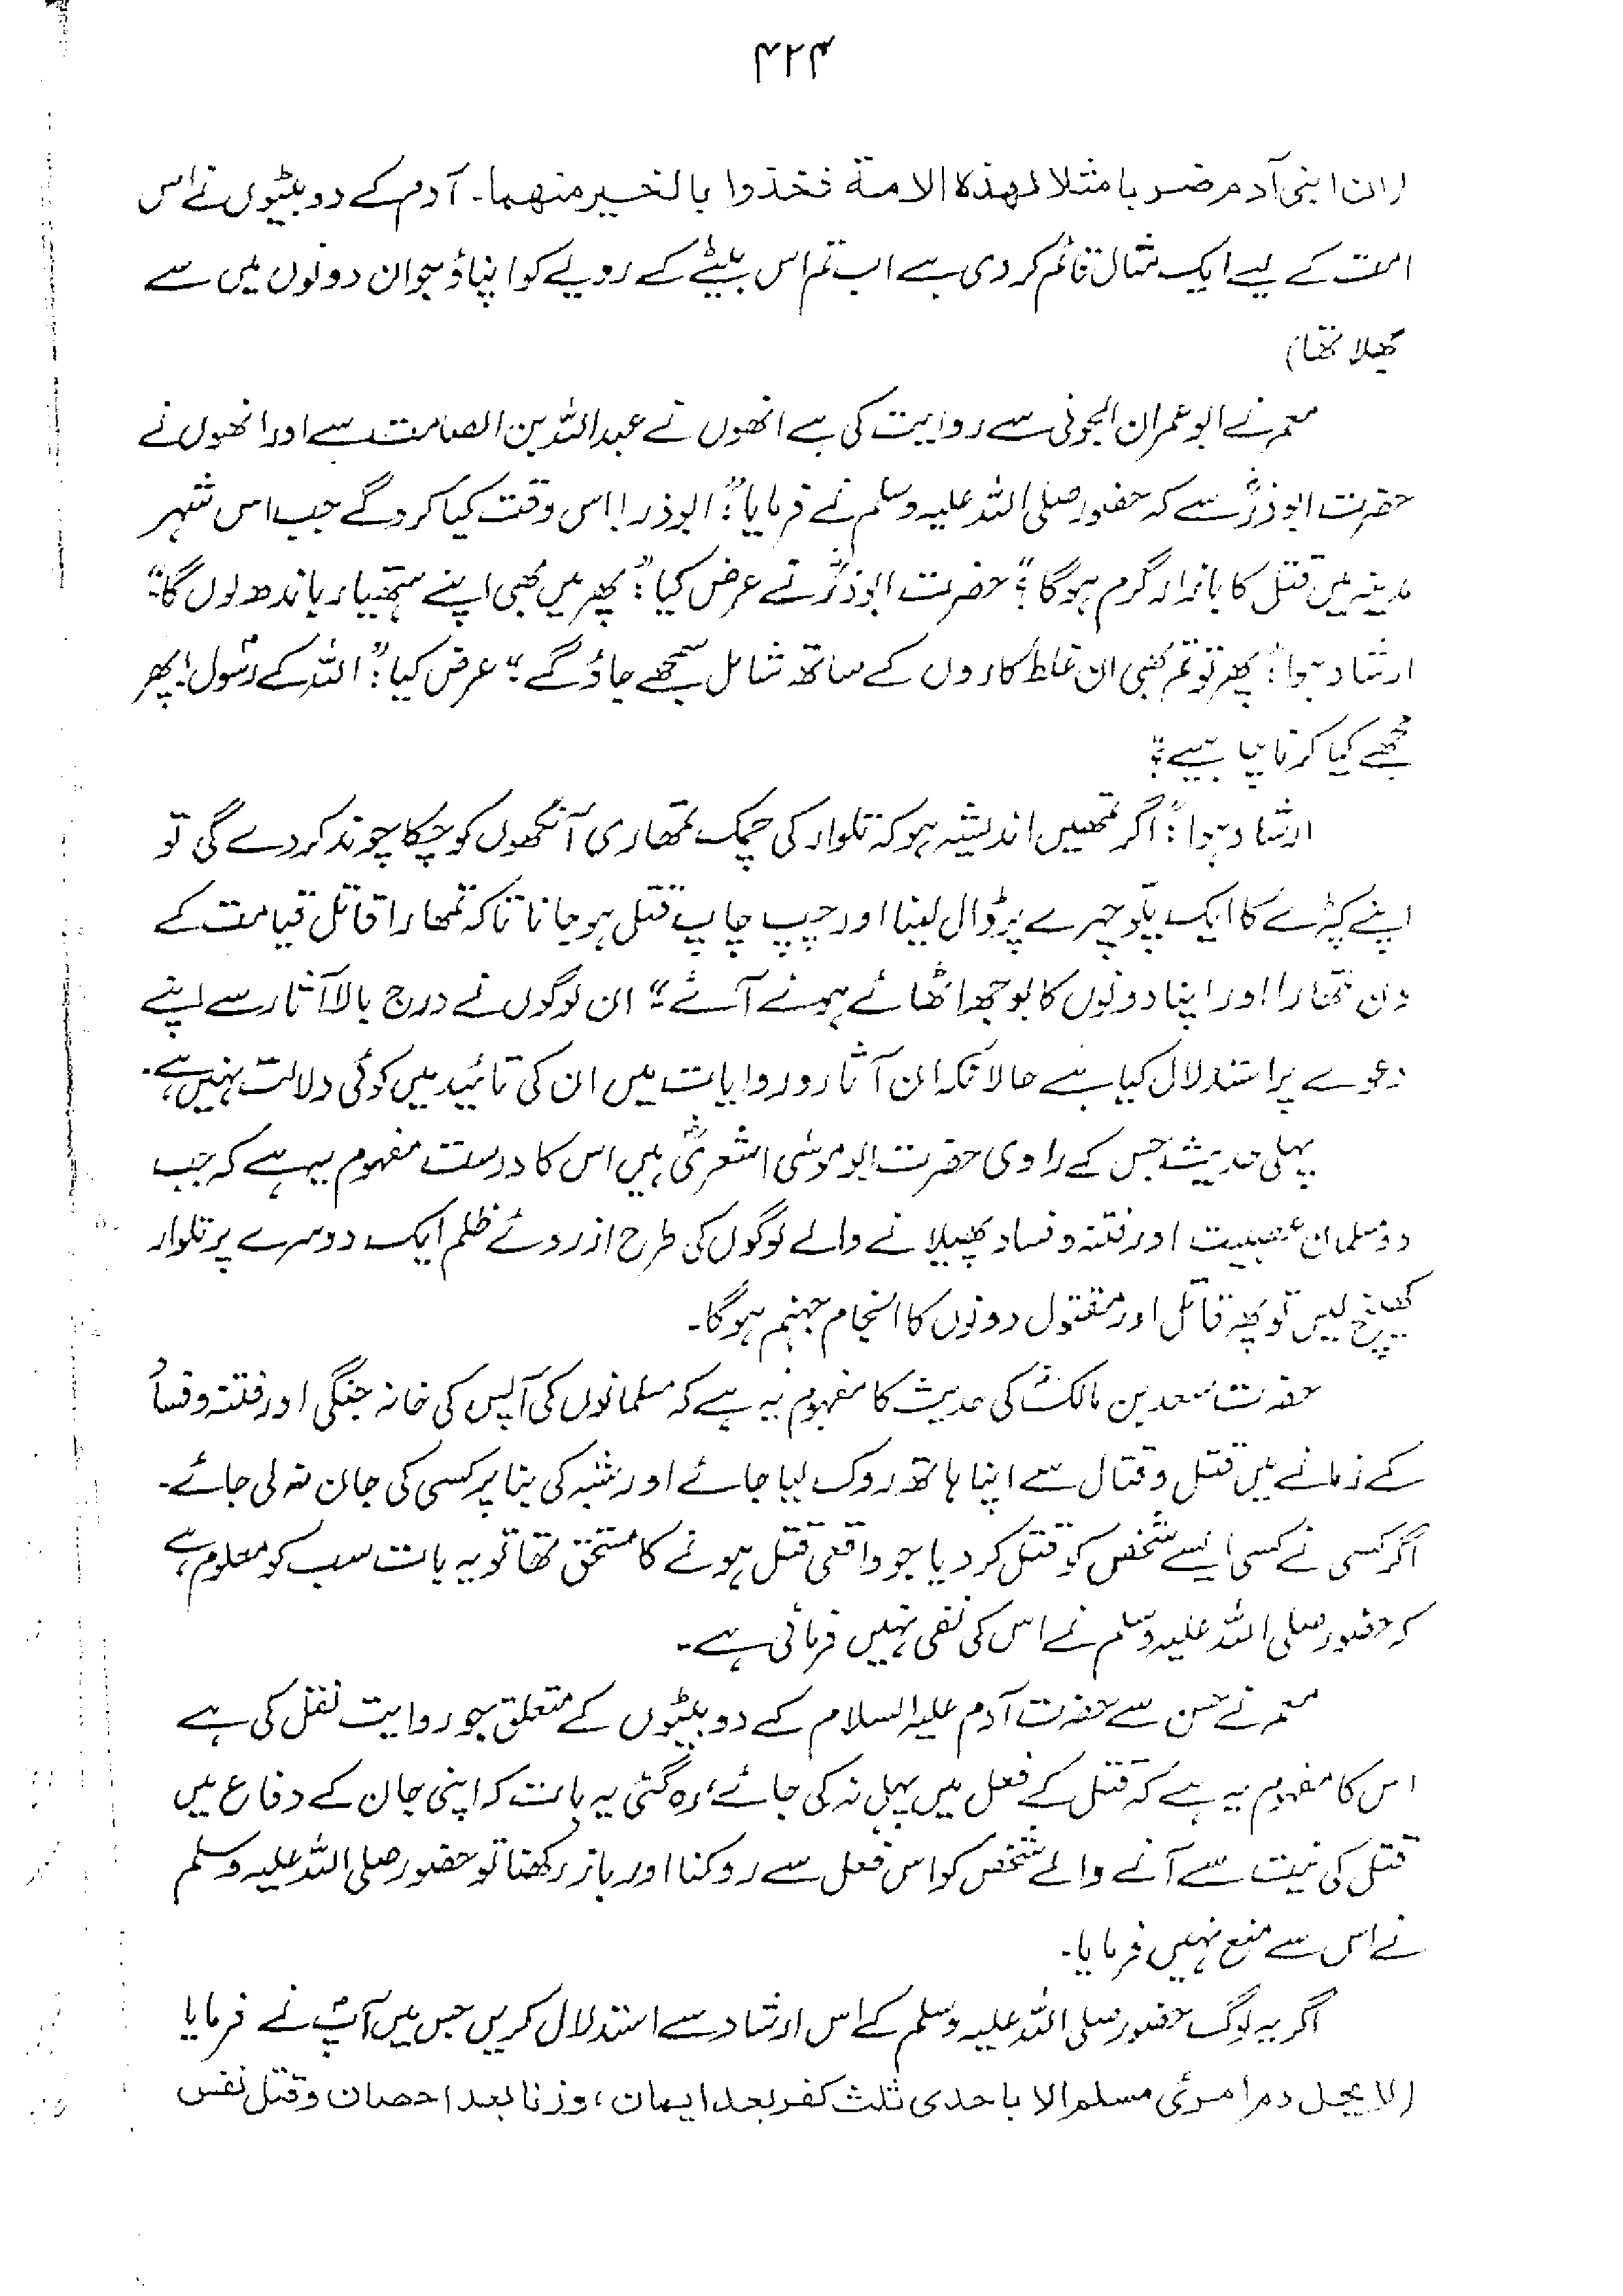 ۴۲۳
(ان ابنی آدم ضربا مثلا لهذه الامة فخذوا بالخیر منهما۔ آدم کے دو بیٹوں نے اس
امت کے لیے ایک مثال قائم کر دی ہے اب تم اس بیٹے کے رویے کو اپناؤ جو ان دونوں میں سے
بھلا تھا)
معمر نے ابوعمران الجونی سے روایت کی ہے انھوں نے عبداللہ بن الصامت سے اور انھوں نے
حضرت ابوذرؓ سے کہ حضور صلی اللہ علیہ وسلم نے فرمایا: "ابوذر! اس وقت کیا کرو گے جب اس شہر
مدینہ میں قتل کا بازار گرم ہوگا؟" حضرت ابوذرؓ نے عرض کیا: "پھر میں بھی اپنے ہتھیار باندھ لوں گا"
ارشاد ہوا: "پھر تو تم بھی ان غلط کاروں کے ساتھ شامل سمجھے جاؤ گے" عرض کیا: "اللہ کے رسولؐ! پھر
مجھے کیا کرنا چاہیے؟"
ارشاد ہوا: "اگر تمھیں اندیشہ ہو کہ تلوار کی چمک تمھاری آنکھوں کو چکا چوند کر دے گی تو
اپنے کپڑے کا ایک پلّو چہرے پر ڈال لینا اور چپ چاپ قتل ہو جانا تاکہ تمھارا قاتل قیامت کے
دن تمھارا اور اپنا دونوں کا بوجھ اٹھائے ہوئے آئے" ان لوگوں نے درج بالا آثار سے اپنے
دعوے پر استدلال کیا ہے حالانکہ ان آثار و روایات میں ان کی تائید میں کوئی دلالت نہیں ہے۔
پہلی حدیث جس کے راوی حضرت ابوموسٰی اشعریؓ ہیں اس کا درست مفہوم یہ ہے کہ جب
دو مسلمان عصبیت اور فتنہ و فساد پھیلانے والے لوگوں کی طرح ازروئے ظلم ایک دوسرے پر تلوار
کھینچ لیں تو پھر قاتل اور مقتول دونوں کا انجام جہنم ہوگا۔
حضرت سعد بن مالکؓ کی حدیث کا مفہوم یہ ہے کہ مسلمانوں کی آپس کی خانہ جنگی اور فتنہ و فساد
کے زمانے میں قتل و قتال سے اپنا ہاتھ روک لیا جائے اور شبہ کی بنا پر کسی کی جان نہ لی جائے۔
اگر کسی نے کسی ایسے شخص کو قتل کر دیا جو واقعی قتل ہونے کا مستحق تھا تو یہ بات سب کو معلوم ہے
کہ حضور صلی اللہ علیہ وسلم نے اس کی نفی نہیں فرمائی ہے۔
معمر نے حسن سے حضرت آدم علیہ السلام کے دو بیٹوں کے متعلق جو روایت نقل کی ہے
اس کا مفہوم یہ ہے کہ قتل کے فعل میں پہل نہ کی جائے، رہ گئی یہ بات کہ اپنی جان کے دفاع میں
قتل کی نیت سے آنے والے شخص کو اس فعل سے روکنا اور باز رکھنا تو حضور صلی اللہ علیہ وسلم
نے اس سے منع نہیں فرمایا۔
اگر یہ لوگ حضور صلی اللہ علیہ وسلم کے اس ارشاد سے استدلال کریں جس میں آپؐ نے فرمایا
(لا یحل دم امرئ مسلم الا باحدی ثلث کفر بعد ایمان، وزنا بعد احصان وقتل نفس